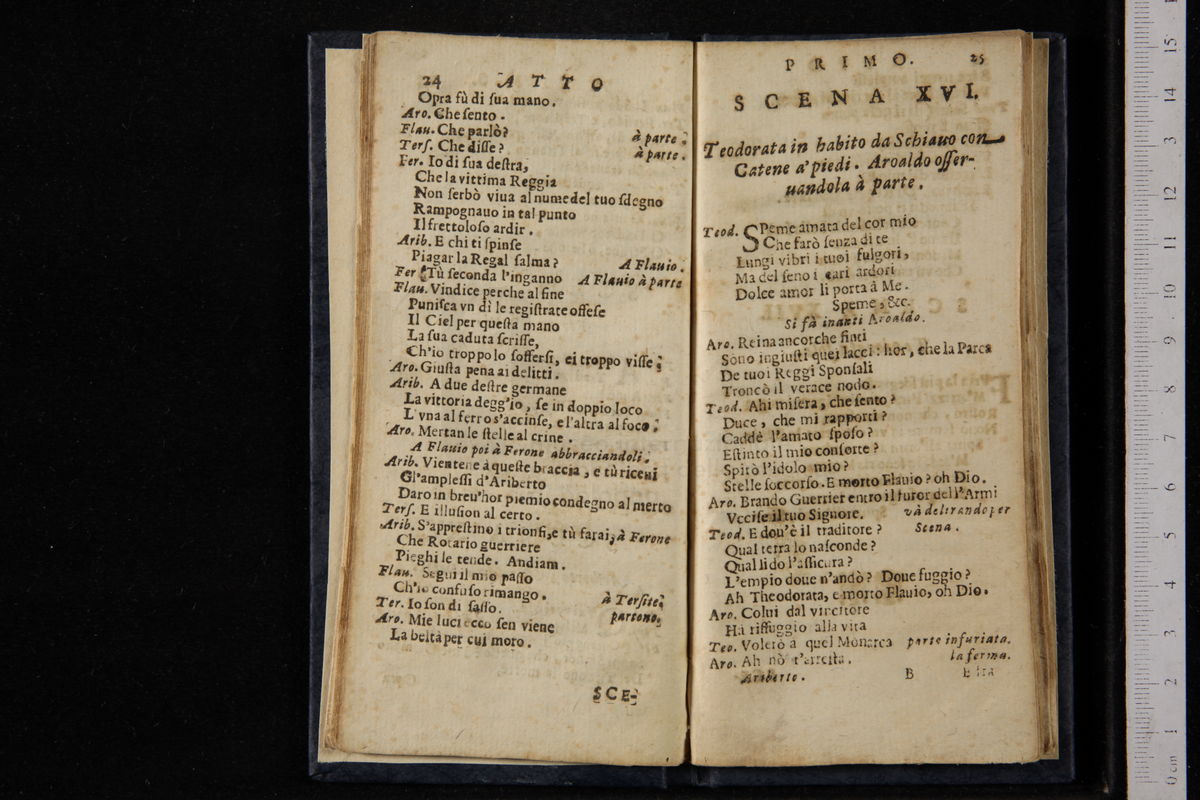 24 ATTO
Opra fù di ſua mano.
Aro. Che ſento.
Flau. Che parlò? à parte.
Terſ. Che diſſe? à parte.
Fer. Io di ſua deſtra,
Che la vittima Reggia
Non ſerbò viua al nume del tuo ſdegno
Rampognauo in tal punto
Il frettoloſo ardir.
Arib. E chi ti ſpinſe
Piagar la Regal ſalma? A Flauio.
Fer Tù ſeconda l'inganno A Flauio à parte
Flau. Vindice perche al fine
Puniſca vn dì le regiſtrate offeſe
Il Ciel per queſta mano
La ſua caduta ſcriſſe,
Ch'io troppo lo ſofferſi, ei troppo viſſe;
Aro. Giuſta pena ai delitti.
Arib. A due deſtre germane
La vittoria degg'io, ſe in doppio loco
L'vna al ferro s'accinſe, e l'altra al foco;
Aro. Mertan le ſtelle al crine.
A Flauio poi à Ferone abbracciandoli.
Arib. Vientene à queſte braccia, e tù riceui
Gl'ampleſſi d'Ariberto
Daro in breu'hor piemio condegno al merto
Terſ. E illuſion al certo.
Arib. S'appreſtino i trionfi, e tù farai, à Ferone
Che Rotario guerriere
Pieghi le tende. Andiam.
Flau. Segui il mio paſſo
Ch'io confuſo rimango. à Terſite,
Ter. Io ſon di ſaſſo. partono,
Aro. Mie luci ecco ſen viene
La beltà per cui moro.
SCE-
PRIMO. 25
SCENA XVI.
Teodorata in habito da Schiauo con
Catene a' piedi. Aroaldo oſſer-
uandola à parte.
Teod. SPeme amata del cor mio
Che farò ſenza di te
Lungi vibri i tuoi fulgori,
Ma del ſeno i cari ardori
Dolce amor li porta à Me.
Speme, &c.
Si fà inanti Aroaldo.
Aro. Reina ancorche finti
Sono ingiuſti quei lacci: hor, che la Parca
De tuoi Reggi Sponſali
Troncò il verace nodo.
Teod. Ahi miſera, che ſento?
Duce, che mi rapporti?
Caddè l'amato ſpoſo?
Eſtinto il mio conſorte?
Spirò l'idolo mio?
Stelle ſoccorſo. E morto Flauio? oh Dio.
Aro. Brando Guerrier entro il furor dell'Armi
Vcciſe il tuo Signore. và delirando per
Teod. E dou'è il traditore? Scena.
Qual terra lo naſconde?
Qual lido l'aſſicura?
L'empio doue n'andò? Doue fuggio?
Ah Theodorata, e morto Flauio, oh Dio.
Aro. Colui dal vincitore
Hà riffuggio alla vita
Teo. Volerò a quel Monarca parte infuriata.
Aro. Ah nò t'arreſta. la ferma.
Ariberto. B